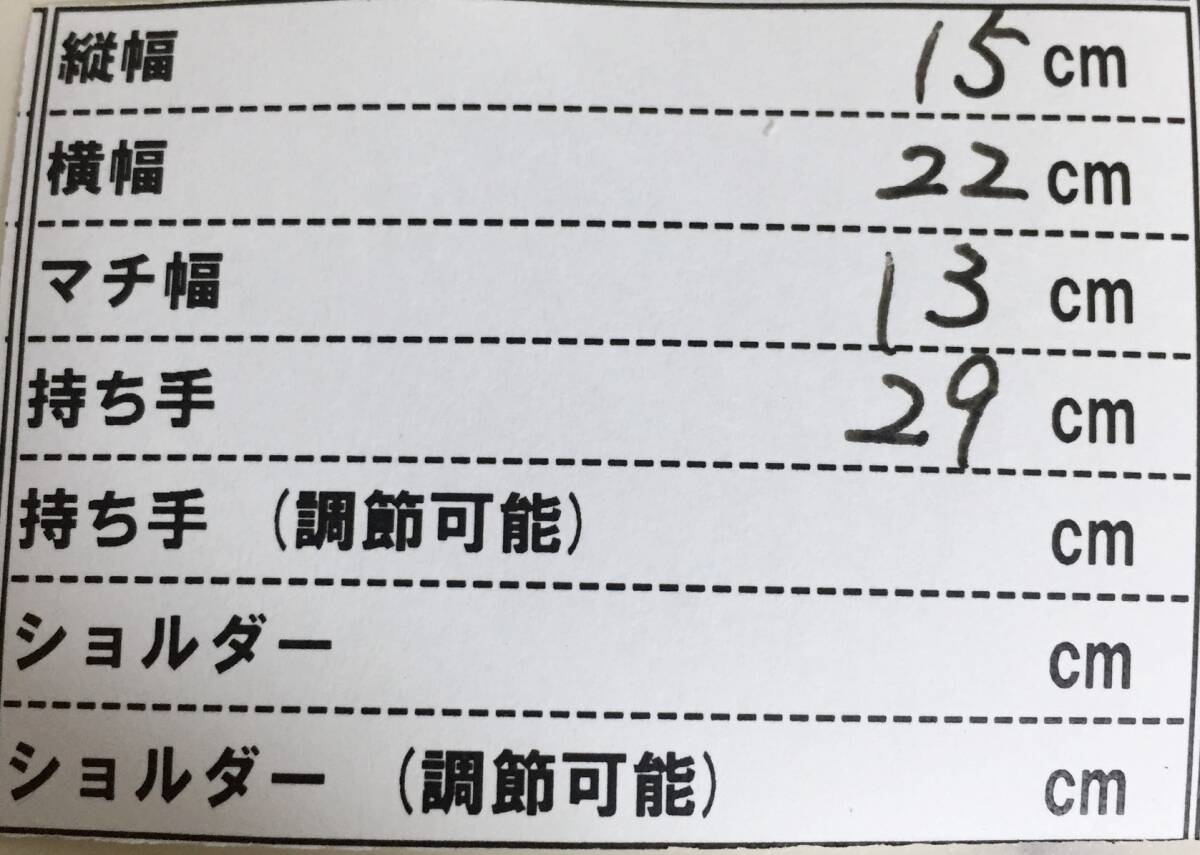 縦幅 15 cm
横幅 22 cm
マチ幅 13 cm
持ち手 29 cm
持ち手 (調節可能) cm
ショルダー cm
ショルダー (調節可能) cm